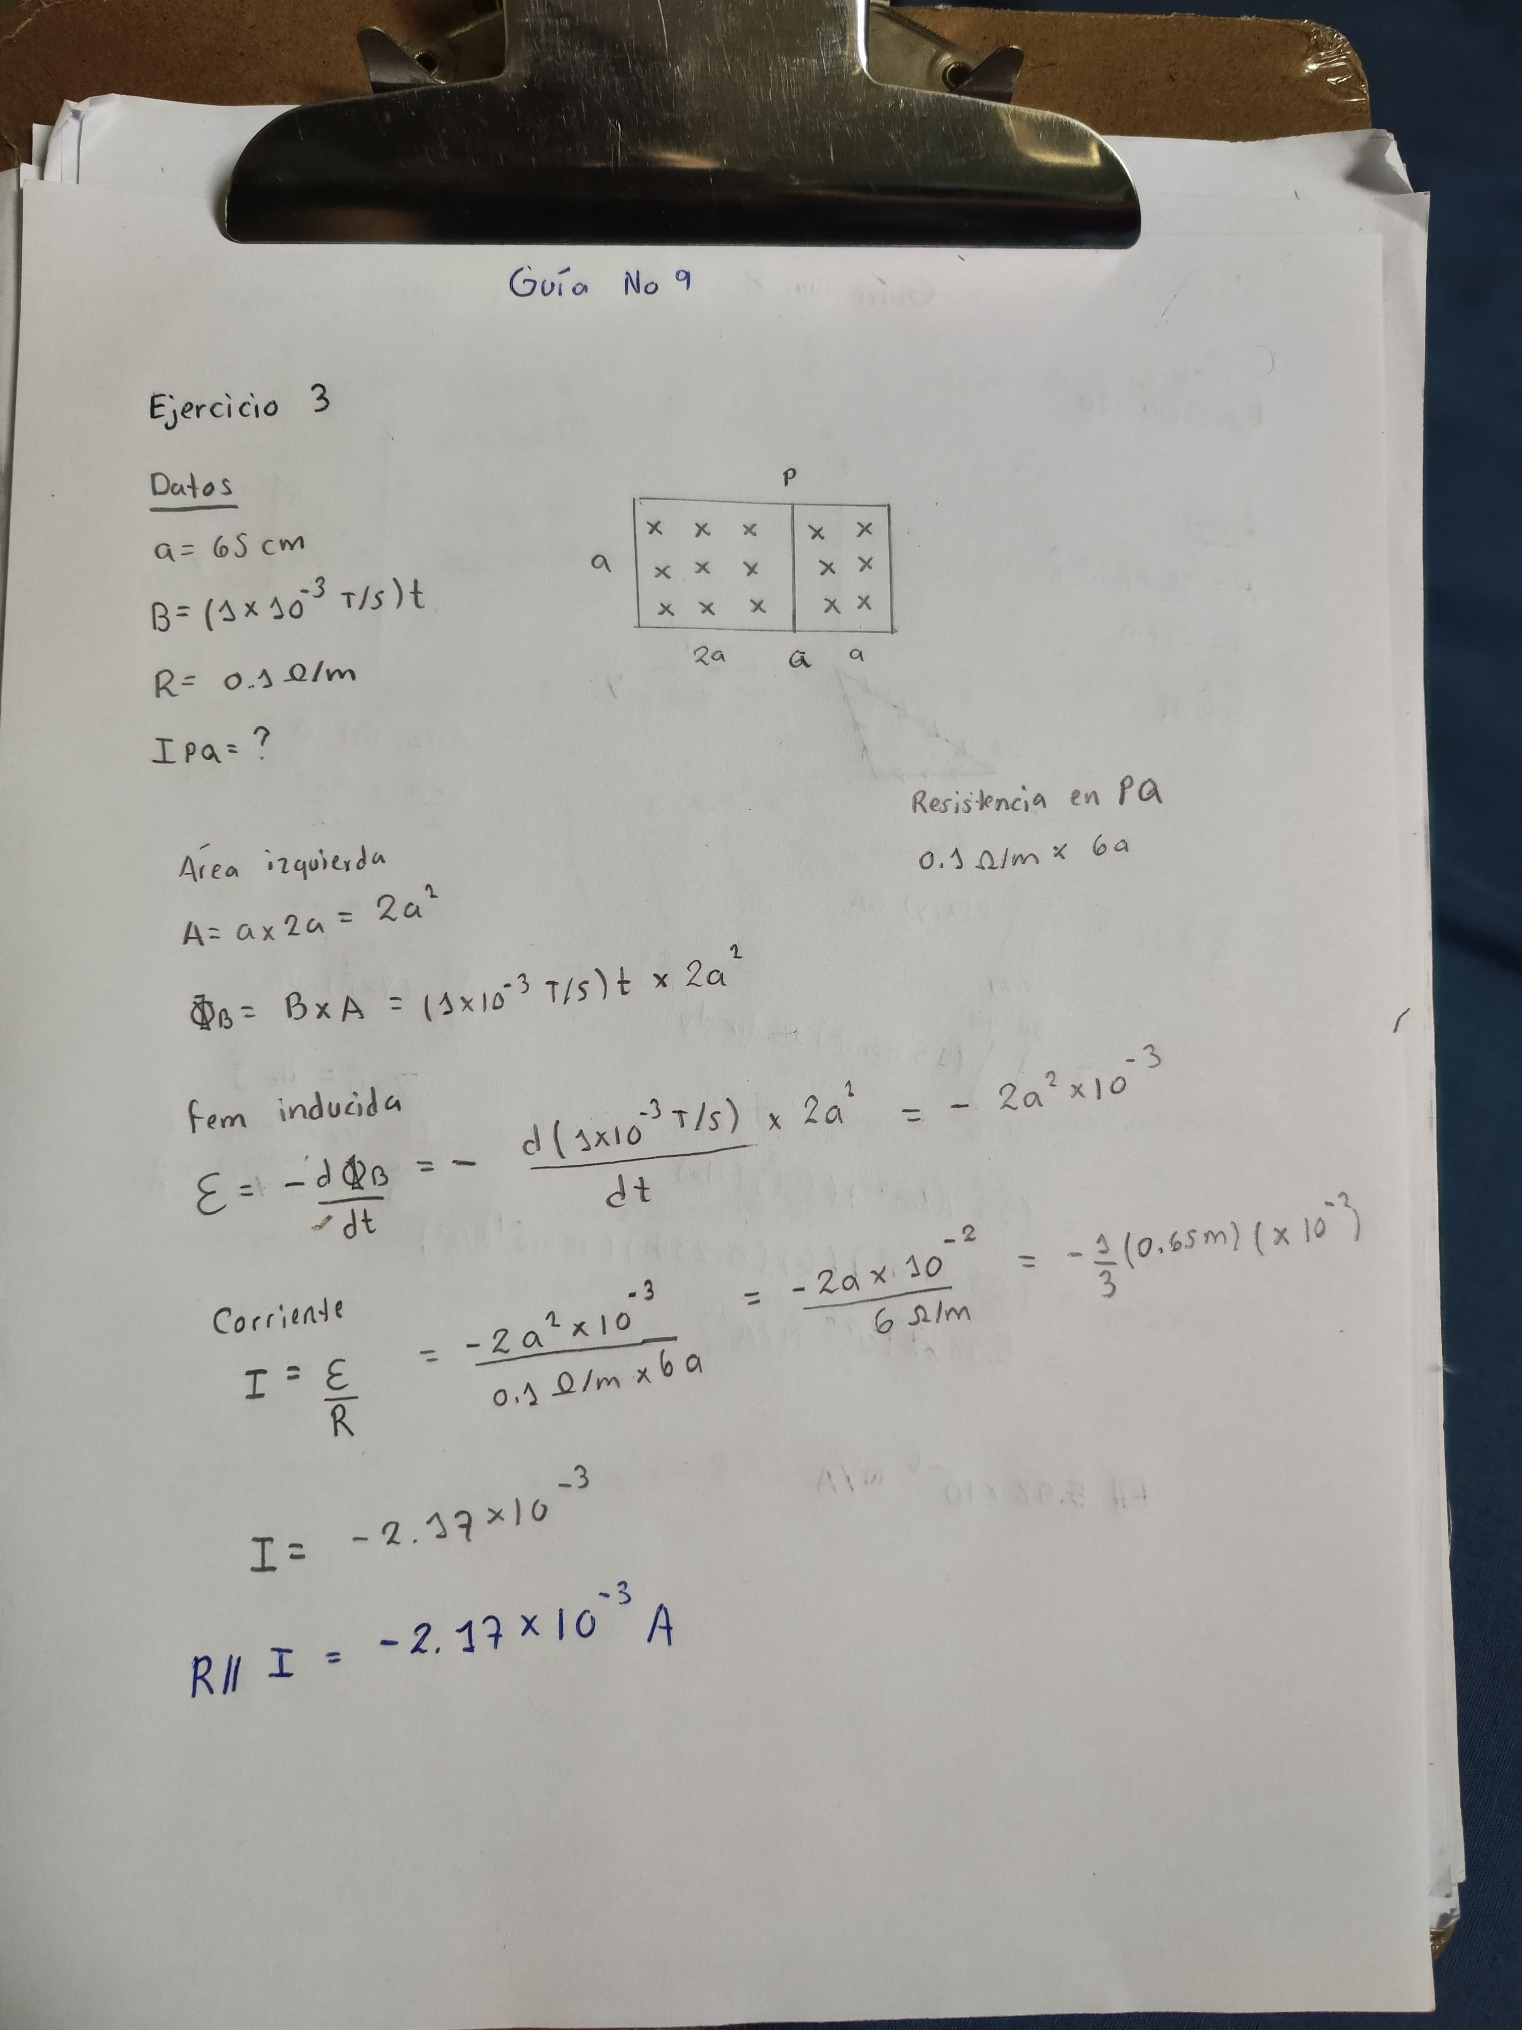 Guía No 9
Ejercicio 3
Datos
a = 65 cm
B = (1 x 10^-3 T/s) t
R = 0.1 Ω/m
I PQ = ?
P
x x x x x
x x x x x
x x x x x
a
2a Q a
Resistencia en PQ
0.1 Ω/m x 6a
Área izquierda
A = a x 2a = 2a²
ΦB = B x A = (1x10^-3 T/s) t x 2a²
fem inducida
ε = - dΦB/dt = - d(1x10^-3 T/s)/dt x 2a² = - 2a² x 10^-3
Corriente
I = ε/R = -2a² x 10^-3 / 0.1 Ω/m x 6a = -2a x 10^-2 / 6 Ω/m = - 1/3 (0.65m) (x 10^-2)
I = -2.17 x 10^-3
R// I = -2.17 x 10^-3 A